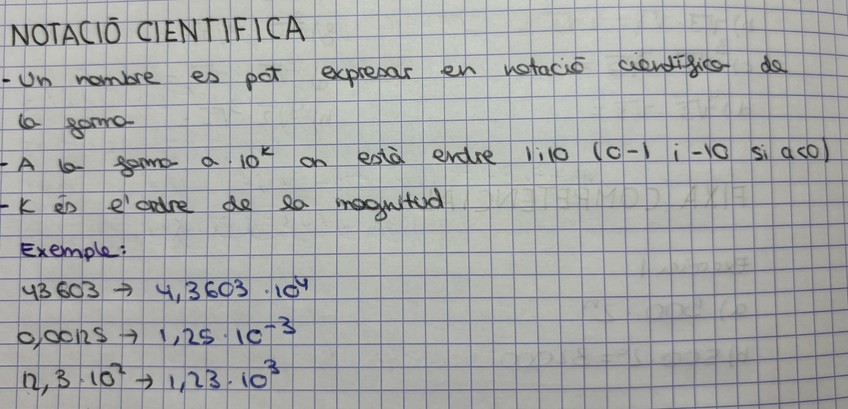 NOTACIÓ CIENTIFICA
- Un nombre es pot expresar en notació científica de
la forma
- A la forma a · 10ᵏ on està entre 1 i 10 (o -1 i -10 si a<0)
- K és l'ordre de la magnitud
Exemple:
43603 → 4,3603 · 10⁴
0,00125 → 1,25 · 10⁻³
12,3 · 10² → 1,23 · 10³